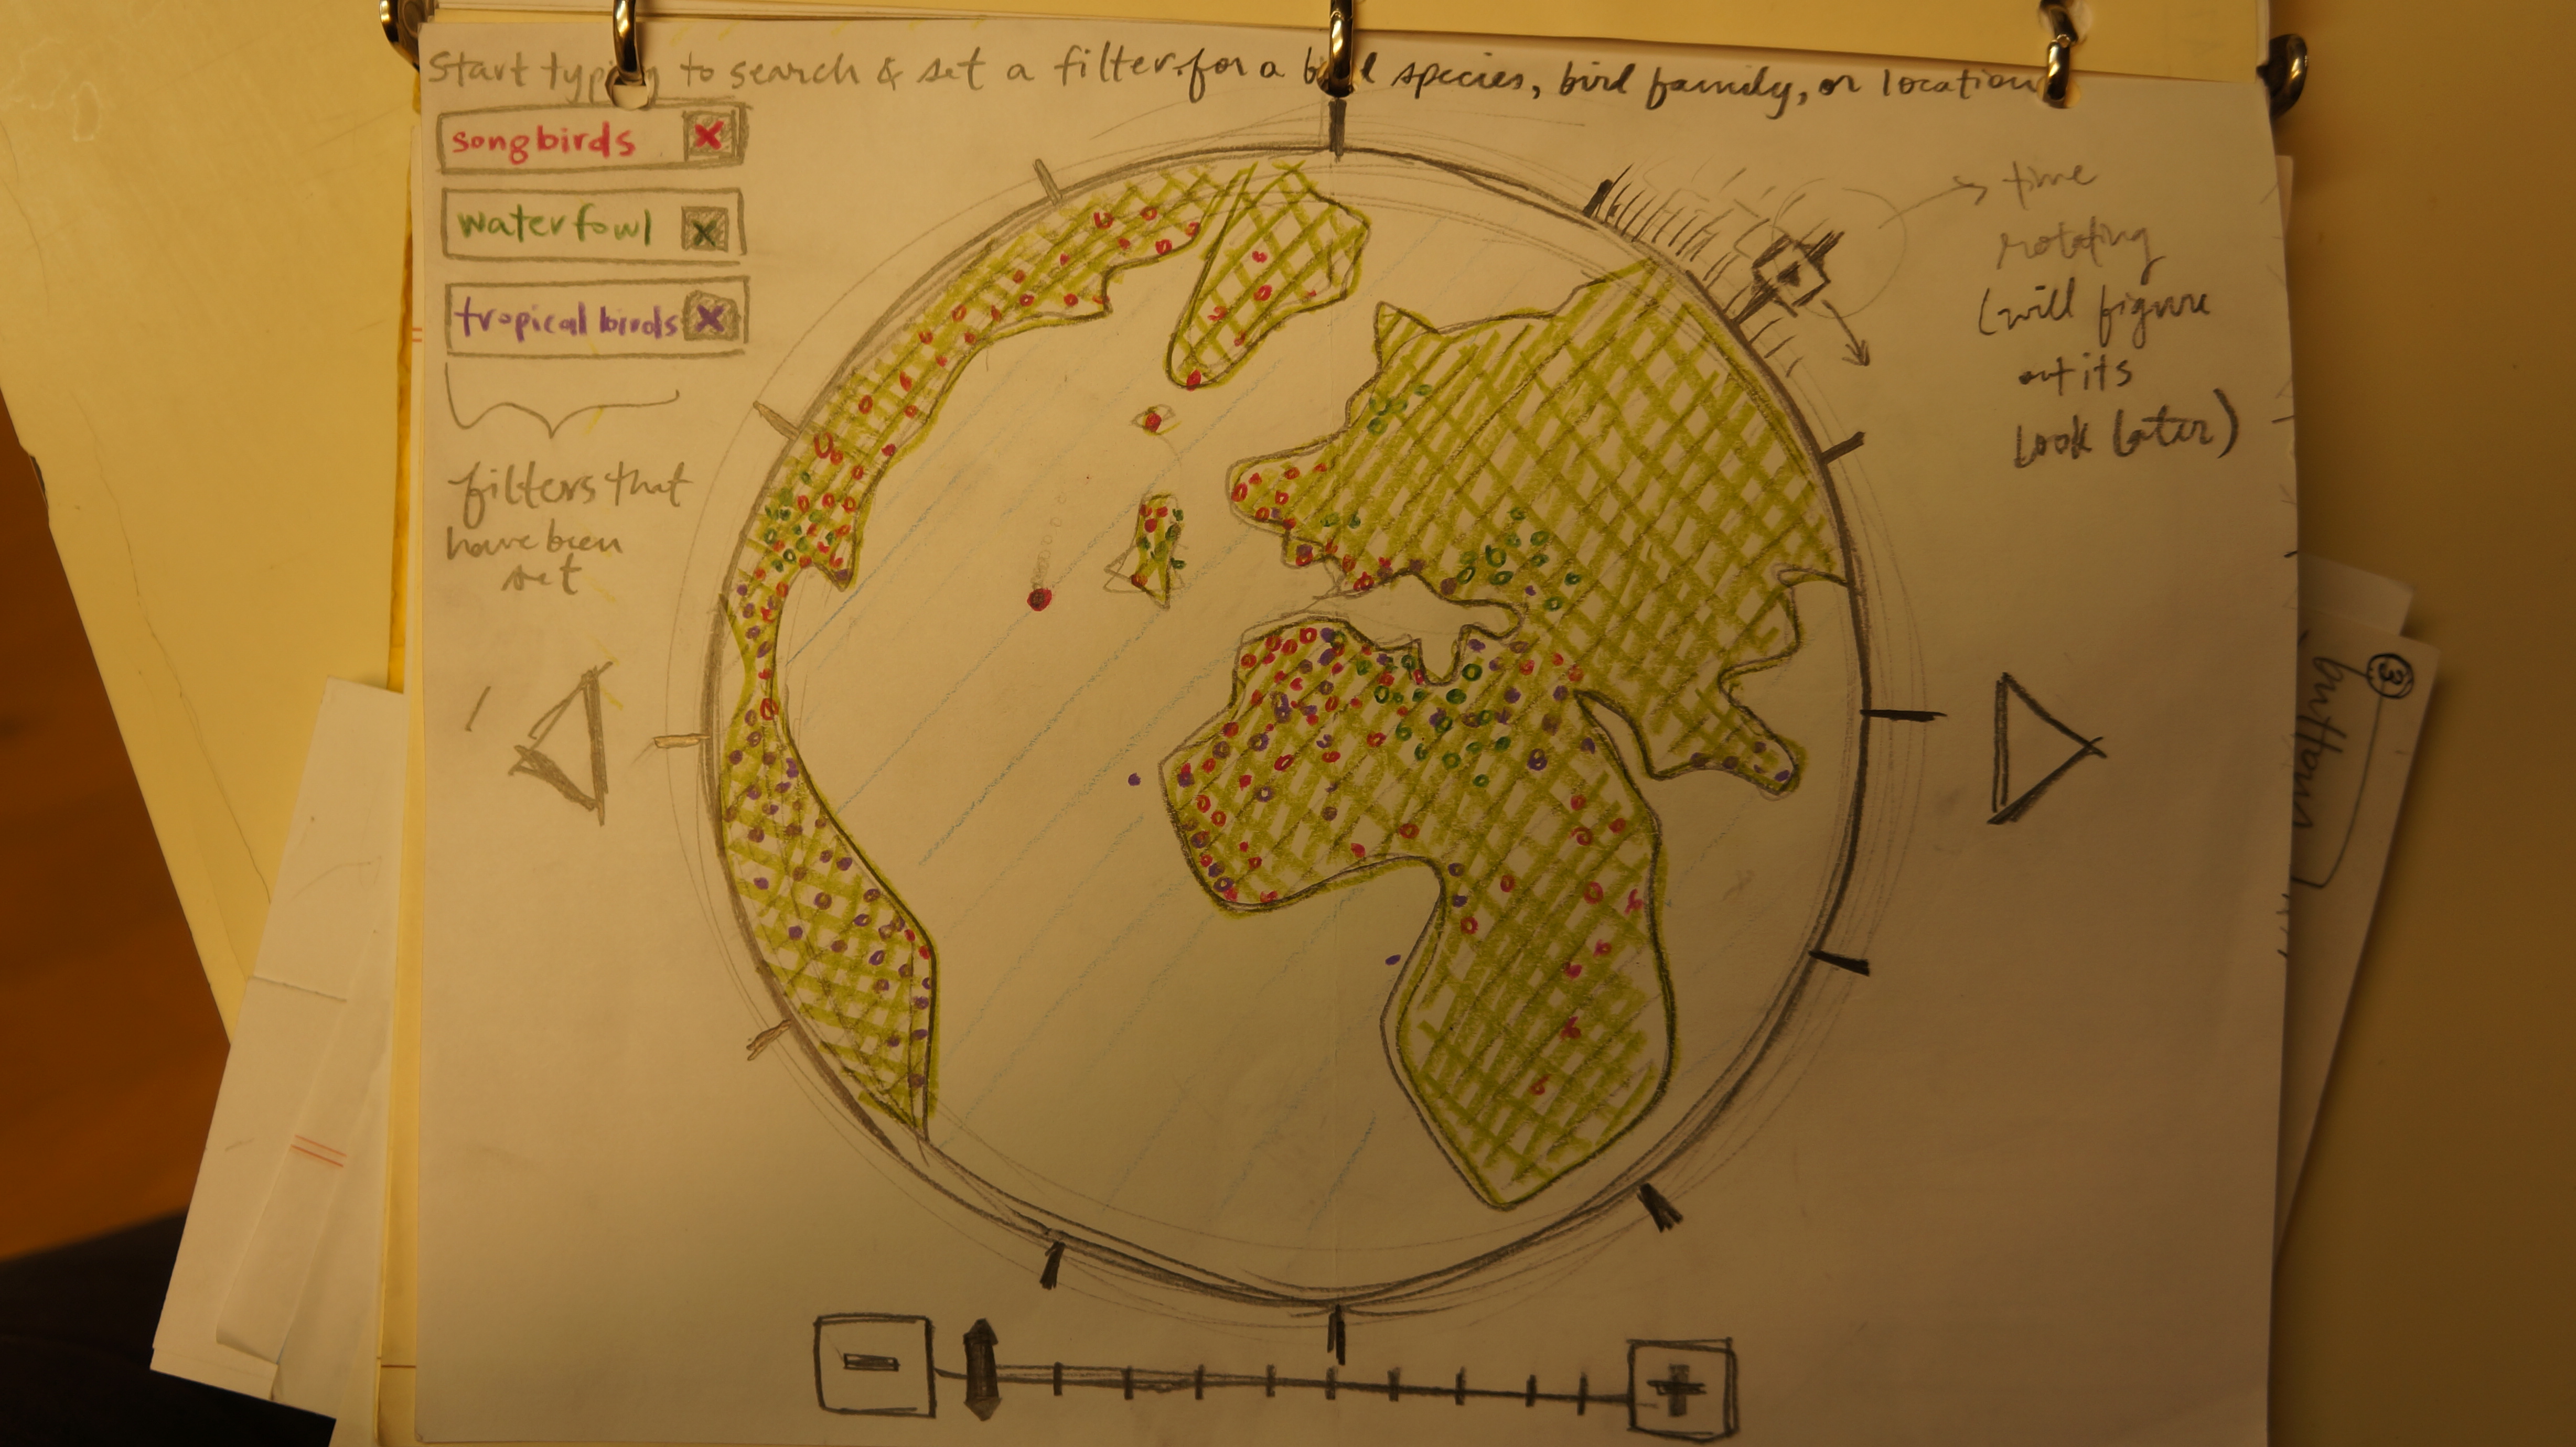 Start typing to search & set a filter for a species, bird family, or location
songbirds X
waterfowl X
tropical birds X
filters that
have been
set
time
rotating
(will figure
out its
look later)
3
button